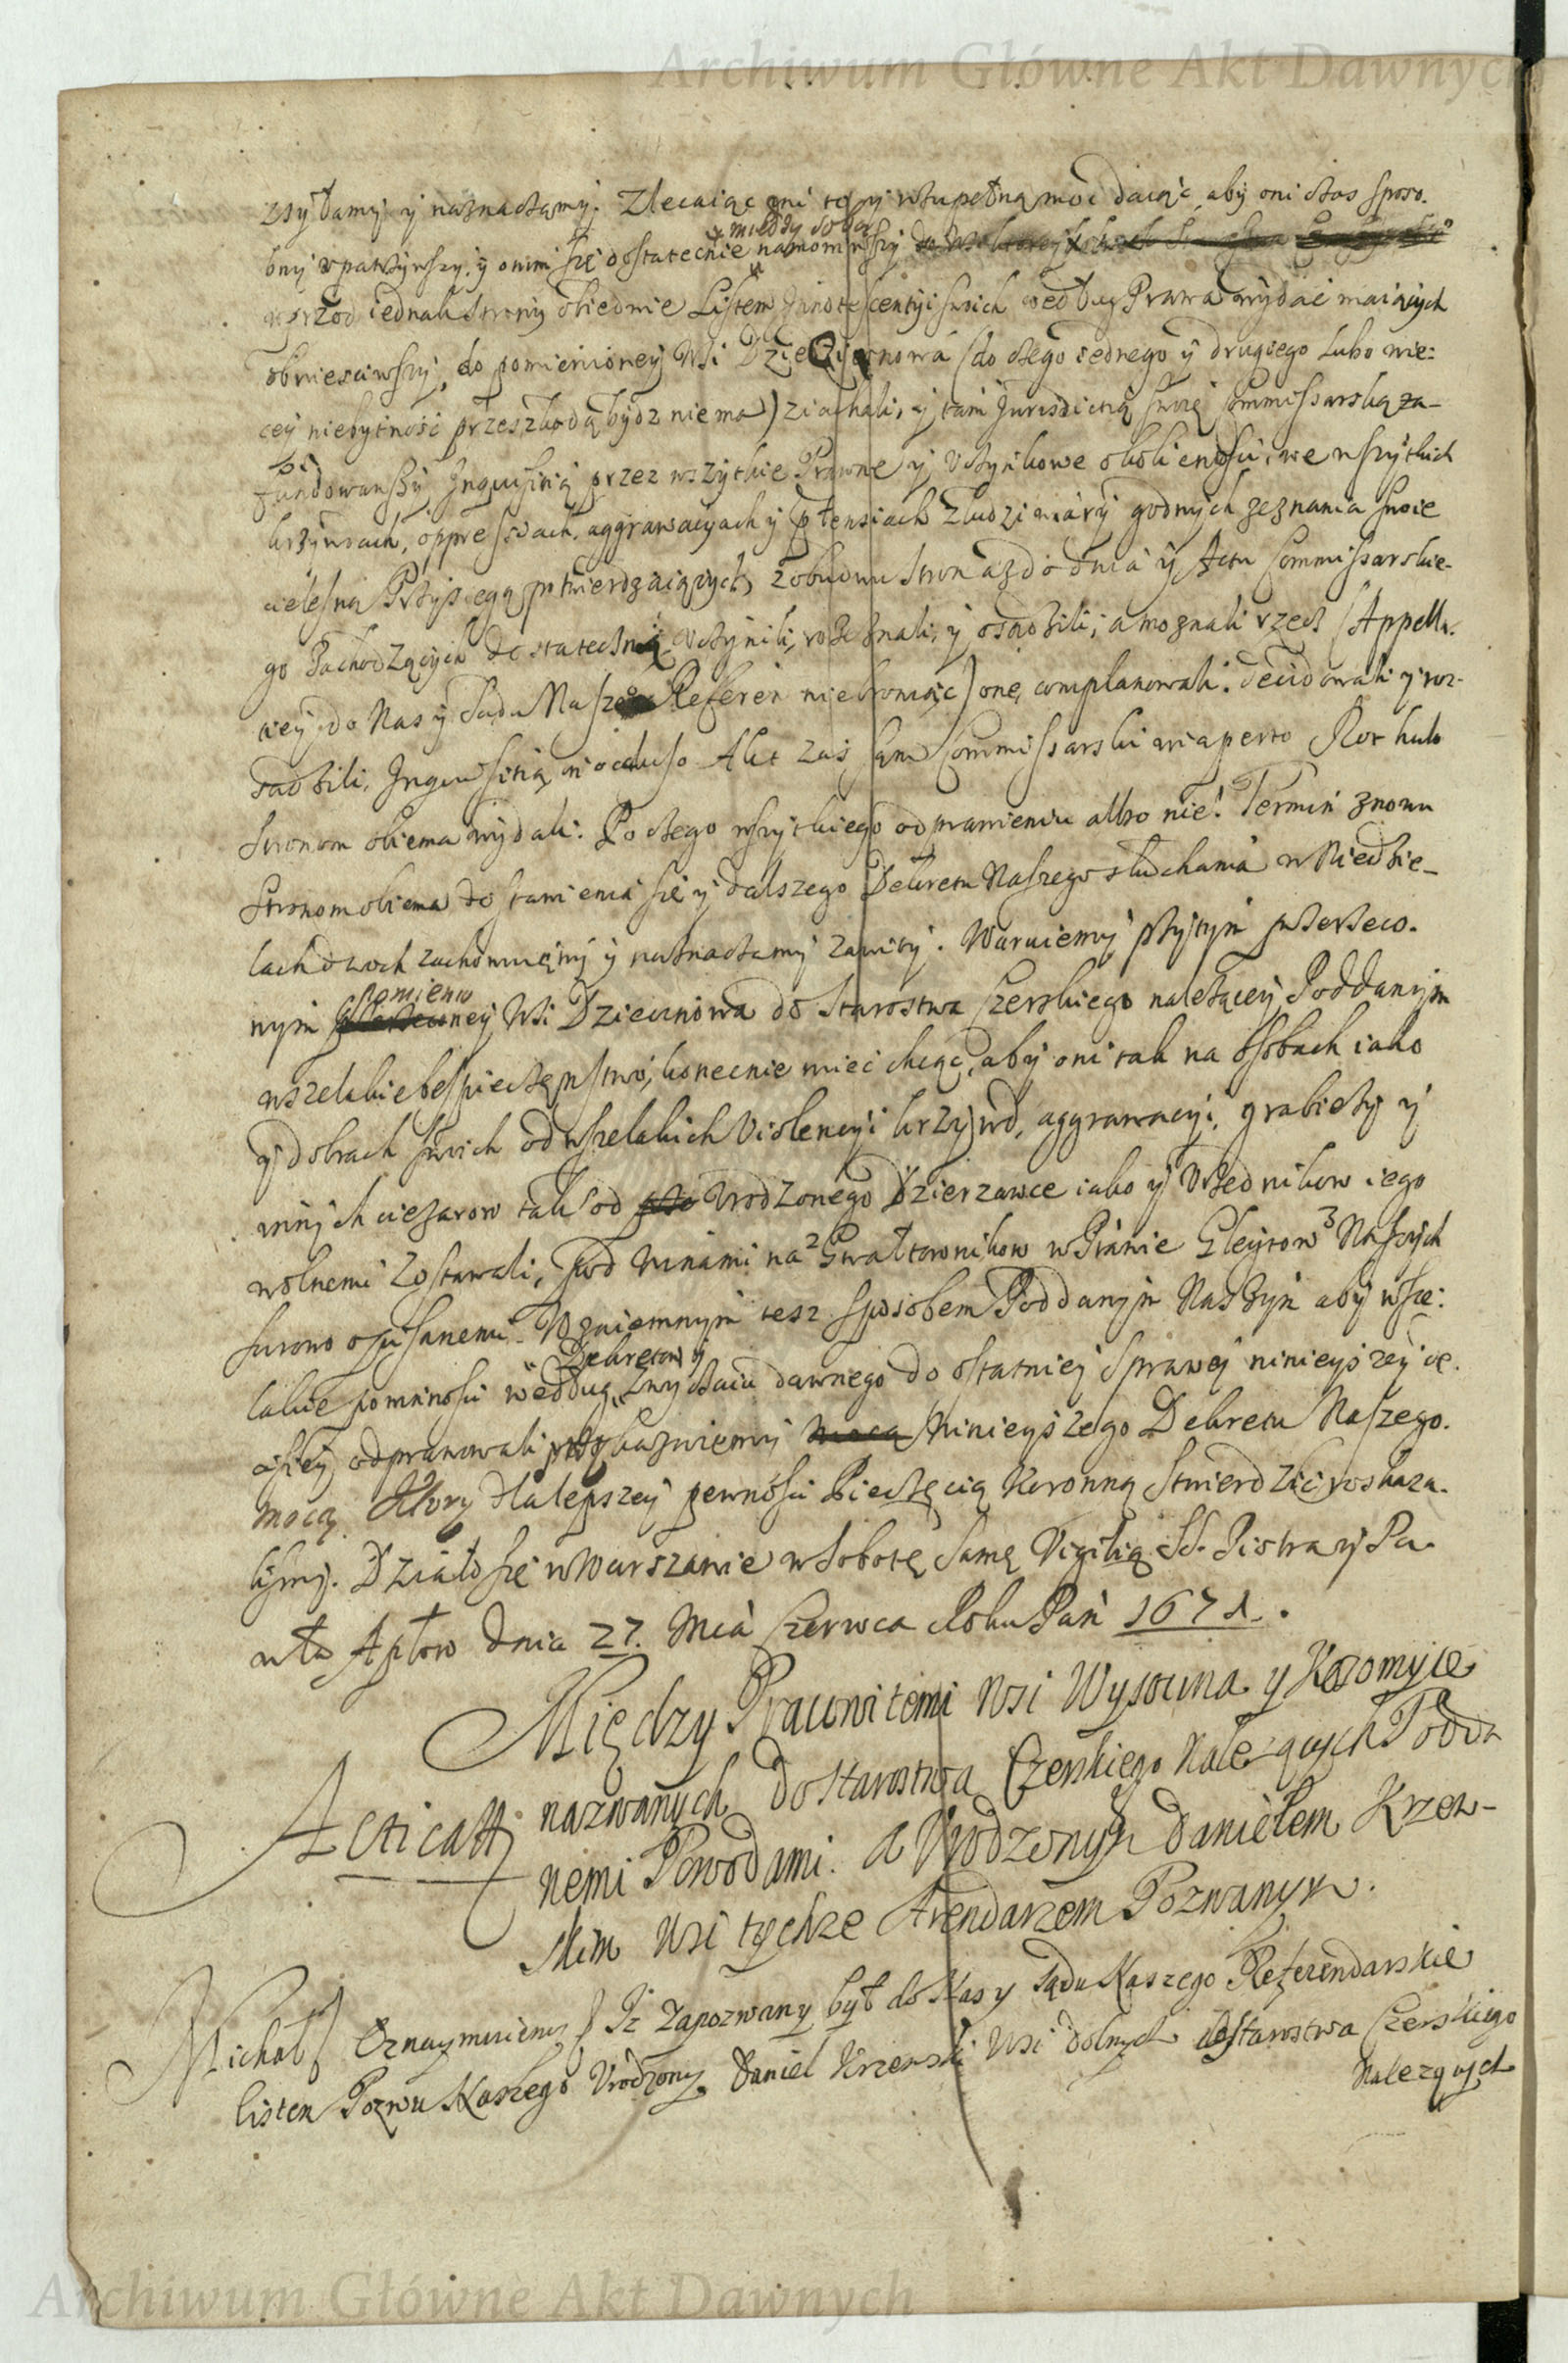 Archiwum Główne Akt Dawnych
zsyłamy y naznaczamy. Zlecaiąc im y wzupełną moc daiąc, aby oni czas sposo-
między sobą
bny vpatrzywszy, y onim się dostatecznie namowiwszy
wprzod iednak strony obiedwie Listem Innotescentyi swoich według Prawa wydać maiących
obwiesciwszy, do pomienioney Wsi Dziecinowa (do czego iednego y drugiego lubo wie-
cey niebytność przeszkodą bydz niema) ziachali, y tam Jurisdictią swoię Commissarską za-
fundowawszy Inquisitią przez wszytkie Prawne y Vczynkowe okolicności, we wszytkich
krzywdach, oppressiach, aggrawacyach y ptensiach z ludzi wiary godnych zeznania swoie
cielesną Przysięgą potwierdzaiących, z obudwu stron aż do dnia y Actu Commissarskie-
go Pachodzących dostateczną vczynili, rozeznali, y osądzili, a uznali rzecz (Appella-
ciey do Nas y Sądu Naszego Referen niebroniąc) onę complanowali. decidowali y roz-
sądzili, Inquisitią w occluso Akt zaś sam Commissarski in aperto Rothulo
stronom obiema wydali. Po czego wszytkiego odprawieniu albo nie! Termin znowu
Stronom obiema do stawienia się y dalszego Dekretu Naszego słuchania w Niedzie-
lach dwoch zachowuiemy y naznaczamy zawity. Waruiemy przytym przerzeco-
pomienio
nym ney Wsi Dziecinowa do Starostwa Czerskiego należącey Poddanym
wszelakie bespieczęnstwo, konecnie mieć chcąc, aby oni tak na osobach iako
y dobrach swoich od wszelakich Violencyi krzywd, aggrawacyi, grabieży y
innych ciężarow tak od Vrodzonego Dzierzawce iako y Vrzednikow iego
wolnemi zostawali, pod winami na 2 Gwałtownikow w Prawie Gleytow 3 Naszych
surowo opisanemi. Wzaiemnym tesz sposobem Poddanym Naszym aby wsze-
Dekretow y
lakie powinnosci według zwyczaiu dawnego do ostatniey sprawy ninieyszey de-
cisiey odprawowali przykazuiemy ninieyszego Dekretu Naszego.
mocą. Ktory dla lepszey pewności Pieczęcią Koronną Stwierdzić roskaza-
lismy. Działo się w Warszawie w Sobotę Samę Vigilią SS. Piotra y Pa-
wła Aptow dnia 27. Mca Czerwca Roku Pań 1671.
Między Pracowitemi Wsi Wysocina y Kozomyie
nazwanych do Starostwa Czerskiego Należących Podda
Acticatt
nemi Powodami. A Vrodzonym Danielem Krzew-
skim Wsi tychze Arendarzem Pozwanym.
Michał Oznaymuiemy Iż Zapozwany był do Nas y Sądu Naszego Referendarskie
listem Pozwu Naszego Vrodzony Daniel Krzewski Wsi Dolnych do Starostwa Czerskiego
Należących
Archiwum Główne Akt Dawnych